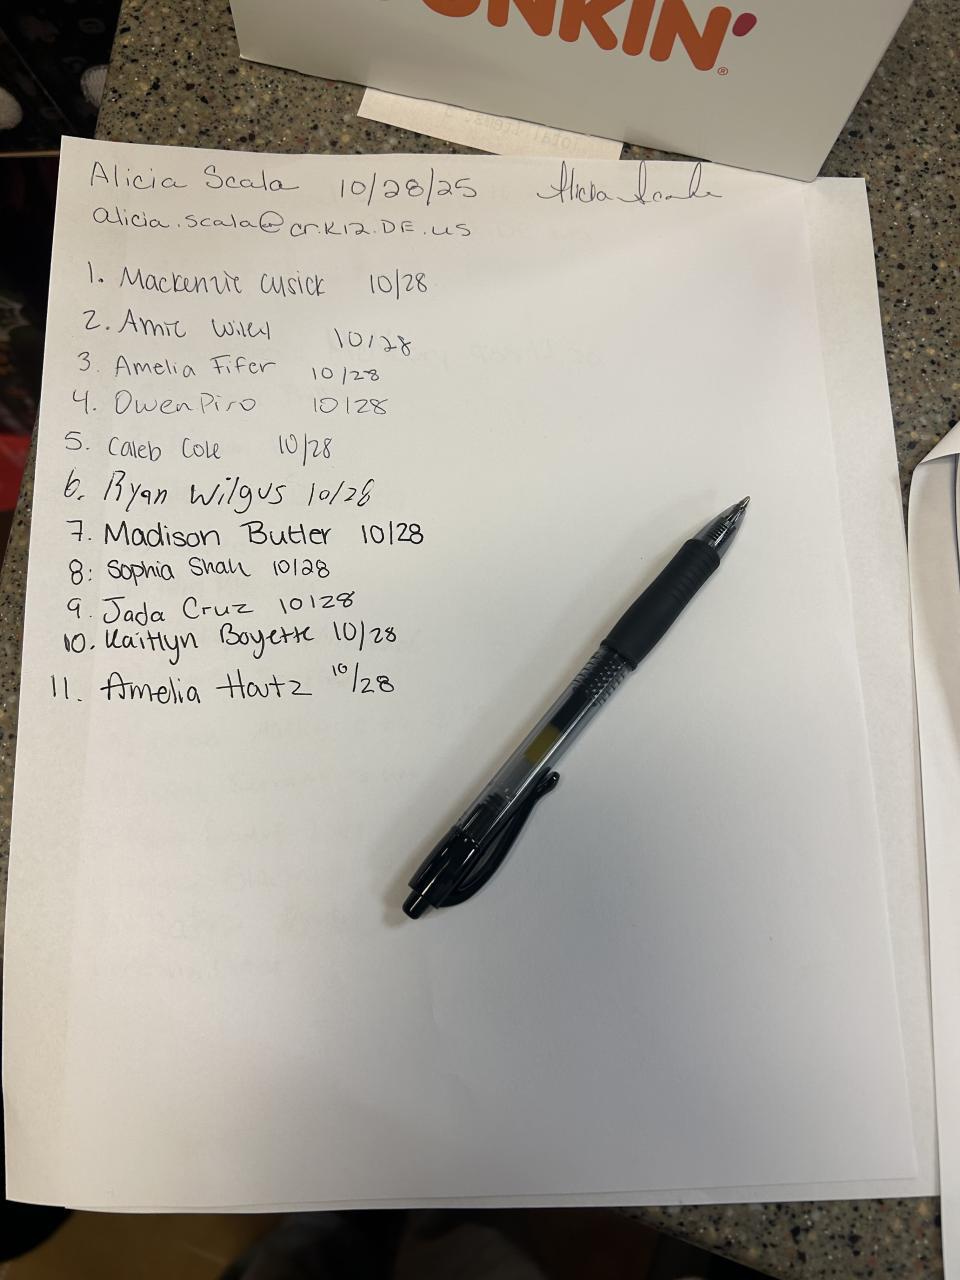 UNKIN'
®
Alicia Scala 10/28/25 Alicia Scala
alicia.scala@cr.K12.DE.us
1. Mackenzie Cusick 10/28
2. Amie Wiley 10/28
3. Amelia Fifer 10/28
4. Owen Piro 10/28
5. Caleb Cole 10/28
6. Ryan Wilgus 10/28
7. Madison Butler 10/28
8: Sophia Shah 10/28
9. Jada Cruz 10/28
10. Kaitlyn Boyette 10/28
11. Amelia Hautz 10/28